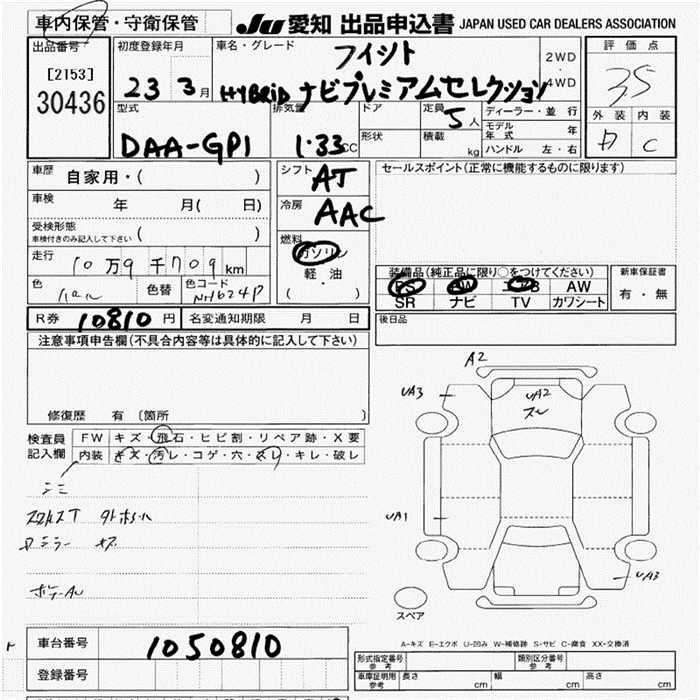 車内保管・守衛保管
JU 愛知 出品申込書 JAPAN USED CAR DEALERS ASSOCIATION
出品番号
[2153]
30436
初度登録年月
23 3月
車名・グレード
フィット
HYBRID ナビプレミアムセレクション
2WD
4WD
評価点
3.5
外装 内装
C
型式
DAA-GP1
排気量
1.33 CC
ドア
形状
定員
5人
積載
kg
ディーラー・並行
モデル年式 年
ハンドル 左・右
車歴
自家用・( )
車検
年 月( 日)
受検形態
車検付きのみ記入して下さい ( )
走行
10万9千709km
色
色替
色コード
NH624P
シフト
AT
冷房
AAC
燃料
ガソリン
軽油
( )
セールスポイント(正常に機能するものに限ります)
装備品(純正品に限り○をつけてください)
PS AW エアB AW
SR ナビ TV カワシート
新車保証書
有・無
後日品
R券 10810 円
名変通知期限 月 日
注意事項申告欄(不具合内容等は具体的に記入して下さい)
修復歴 有 〔箇所 〕
検査員
記入欄
FW キズ・飛石・ヒビ割・リペア跡・X要
内装 キズ・汚レ・コゲ・穴・スレ・キレ・破レ
シミ
A2
UA3
UA2
スレ
UA1
UA3
スペア
A-キズ E-エクボ U-凹み W-補修跡 S-サビ C-腐食 XX-交換済
車台番号
1050810
登録番号
形式指定番号
参考
類別区分番号
参考
車庫証明用
参考
長さ cm
幅 cm
高さ cm